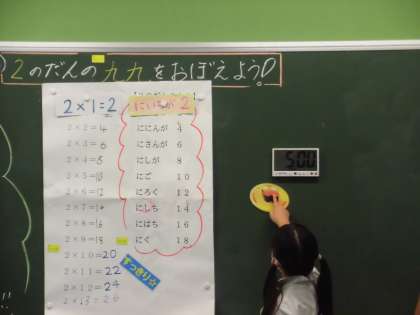 2のだんの九九をおぼえよう!
2×1=2
2×2=4
2×3=6
2×4=8
2×5=10
2×6=12
2×7=14
2×8=16
2×9=18
2×10=20
2×11=22
2×12=24
2×13=26
にいちが 2
ににんが 4
にさんが 6
にしが 8
にご 10
にろく 12
にしち 14
にはち 16
にく 18
すっきり☆
5:00